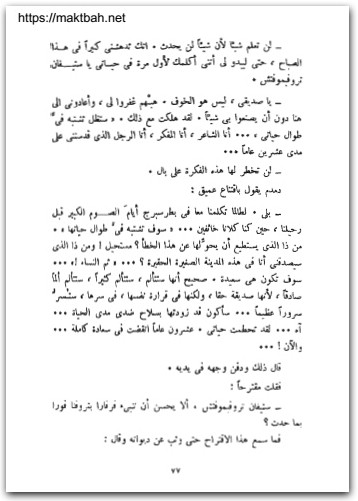 https://maktbah.net
ــ لن تعلم شيئا لأن شيئاً لن يحدث ٠ انك تدهشنى كثيرا فى هذا
الصباح ، حتى ليبدو لى أننى أكلمك لأول مرة فى حياتى يا ستيفان
تروفيموفتش ٠
ــ يا صديقى ، ليس هو الخوف ٠ هبهم غفروا لى ، وأعادونى الى
هنا دون أن يصنعوا بى شيئاً ٠ لقد هلكت مع ذلك ٠ « ستظل تشتبه فىَّ
طوال حياتى ، ٠٠٠ أنا الشاعر ، أنا المفكر ، أنا الرجل الذى قدستنى على
مدى عشرين عاماً ٠٠٠
ــ لن تخطر لها هذه الفكرة على بال ٠
دمدم يقول باقتناع عميق :
ــ بلى ٠ لطالما تكلمنا معا فى بطرسبرج أيام الصوم الكبير قبل
رحيلنا ، حين كنا كلانا خائفين ٠٠٠ « سوف تشتبه فىَّ طوال حياتها » ٠
من ذا الذى يستطيع أن يحولها عن هذا الخطأ ؟ مستحيل ! ومن ذا الذى
سيصدقنى أنا فى هذه المدينة الصغيرة الحقيرة ؟ ٠٠٠ ثم النساء ! ٠٠٠
سوف تكون هى سعيدة ٠ صحيح أنها ستتألم ، ستتألم كثيرا ، ستتألم ألماً
صادقاً ، لأنها صديقة حقا ، ولكنها فى قرارة نفسها ، فى سرها ، ستُسر
سروراً عظيماً ٠٠٠ سأكون قد زودتها بسلاح ضدى مدى الحياة ٠٠٠
آه ٠٠٠ لقد تحطمت حياتى ٠ عشرون عاماً انقضت فى سعادة كاملة ٠٠٠
والآن ! ٠٠٠
قال ذلك ودفن وجهه فى يديه ٠
فقلت مقترحاً :
ــ ستيفان تروفيموفتش ، ألا يحسن أن تنبىء فرفارا بتروفنا فورا
بما حدث ؟
فما سمع هذا الاقتراح حتى وثب عن ديوانه وقال :
٧٧